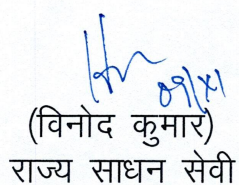 09/XI
(विनोद कुमार)
राज्य साधन सेवी